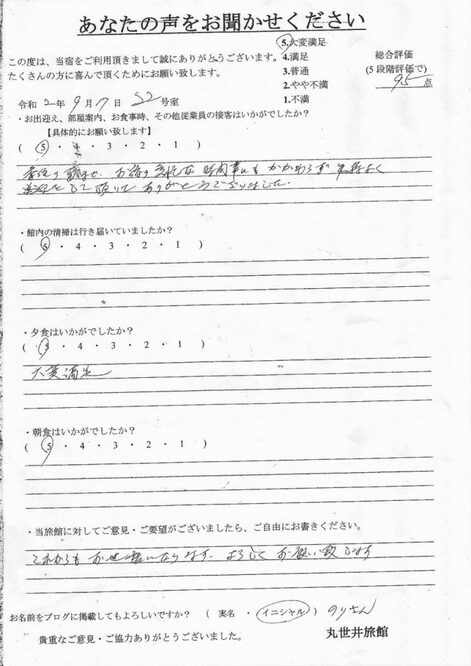 あなたの声をお聞かせください
この度は、当宿をご利用頂きまして誠にありがとうございます。
たくさんの方に喜んで頂くためにお願い致します。
5.大変満足
4.満足
3.普通
2.やや不満
1.不満
総合評価
(5段階評価で)
95 点
令和 2年 9月 17日 52号室
・お出迎え、部屋案内、お食事時、その他従業員の接客はいかがでしたか？
【具体的にお願い致します】
( 5 ・ 4 ・ 3 ・ 2 ・ 1 )
にもかかわらず
して頂いてありがとうございました。
・館内の清掃は行き届いていましたか？
( 5 ・ 4 ・ 3 ・ 2 ・ 1 )
・夕食はいかがでしたか？
( 5 ・ 4 ・ 3 ・ 2 ・ 1 )
大変満足
・朝食はいかがでしたか？
( 5 ・ 4 ・ 3 ・ 2 ・ 1 )
・当旅館に対してご意見・ご要望がございましたら、ご自由にお書きください。
これからもお世話になります。よろしくお願い致します
お名前をブログに掲載してもよろしいですか？ ( 実名 ・ イニシャル ) のりさん
貴重なご意見・ご協力ありがとうございました。
丸世井旅館